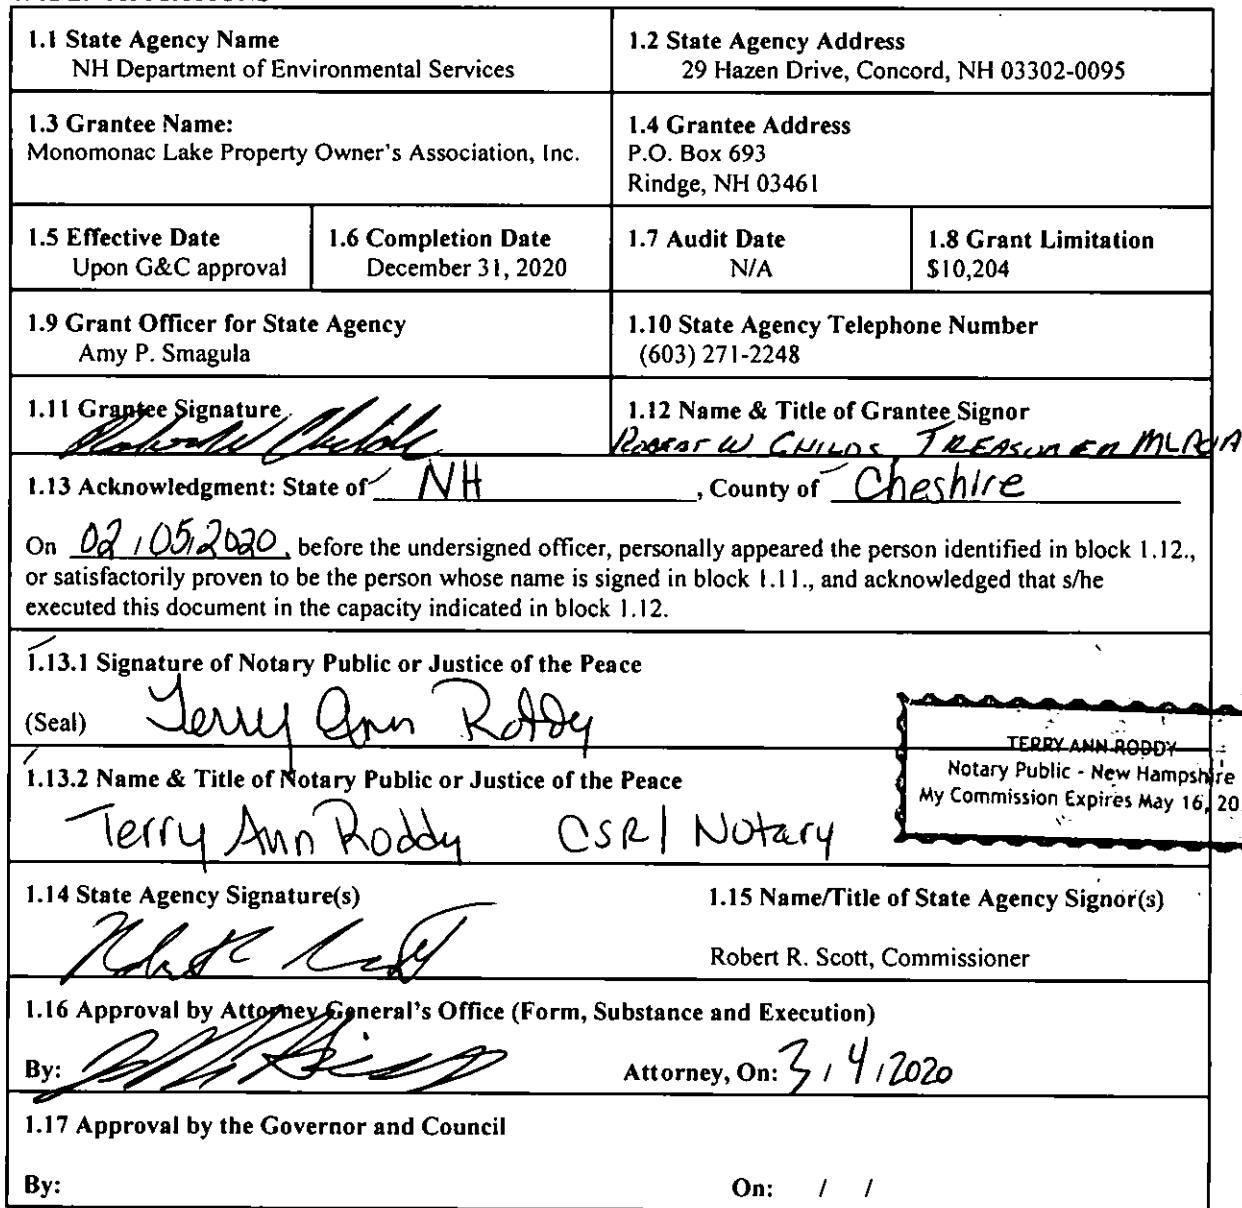 1.1 State Agency Name
NH Department of Environmental Services
1.2 State Agency Address
29 Hazen Drive, Concord, NH 03302-0095
1.3 Grantee Name:
Monomonac Lake Property Owner's Association, Inc.
1.4 Grantee Address
P.O. Box 693
Rindge, NH 03461
1.5 Effective Date
Upon G&C approval
1.6 Completion Date
December 31, 2020
1.7 Audit Date
N/A
1.8 Grant Limitation
$10,204
1.9 Grant Officer for State Agency
Amy P. Smagula
1.10 State Agency Telephone Number
(603) 271-2248
1.11 Grantee Signature
1.12 Name & Title of Grantee Signor
ROBERT W CHILDS, TREASURER MLPOA
1.13 Acknowledgment: State of NH, County of Cheshire
On 02/05/2020, before the undersigned officer, personally appeared the person identified in block 1.12.,
or satisfactorily proven to be the person whose name is signed in block 1.11., and acknowledged that s/he
executed this document in the capacity indicated in block 1.12.
1.13.1 Signature of Notary Public or Justice of the Peace
(Seal) Terry Ann Roddy
TERRY ANN RODDY
Notary Public - New Hampshire
My Commission Expires May 16, 20
1.13.2 Name & Title of Notary Public or Justice of the Peace
Terry Ann Roddy CSR/Notary
1.14 State Agency Signature(s)
1.15 Name/Title of State Agency Signor(s)
Robert R. Scott, Commissioner
1.16 Approval by Attorney General's Office (Form, Substance and Execution)
By: Attorney, On: 3/4/2020
1.17 Approval by the Governor and Council
By: On: / /